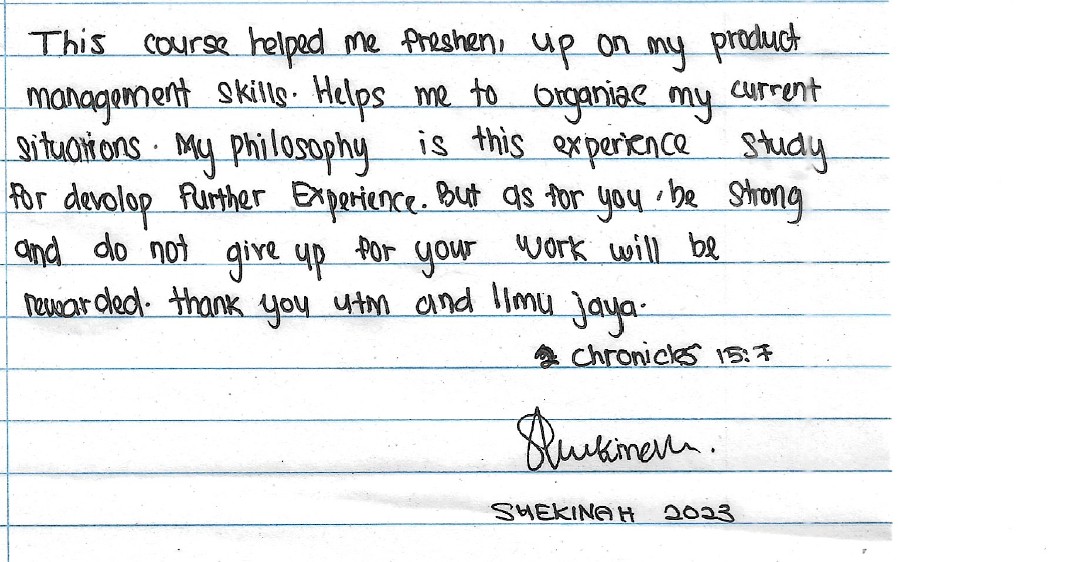 This course helped me freshen, up on my product
management skills. Helps me to organize my current
situations. My philosophy is this experience study
for devolop further Experience. But as for you, be strong
and do not give up for your work will be
rewarded. thank you utm and Ilmu jaya.
2 chronicles 15:7
Shekinah.
SHEKINAH 2023